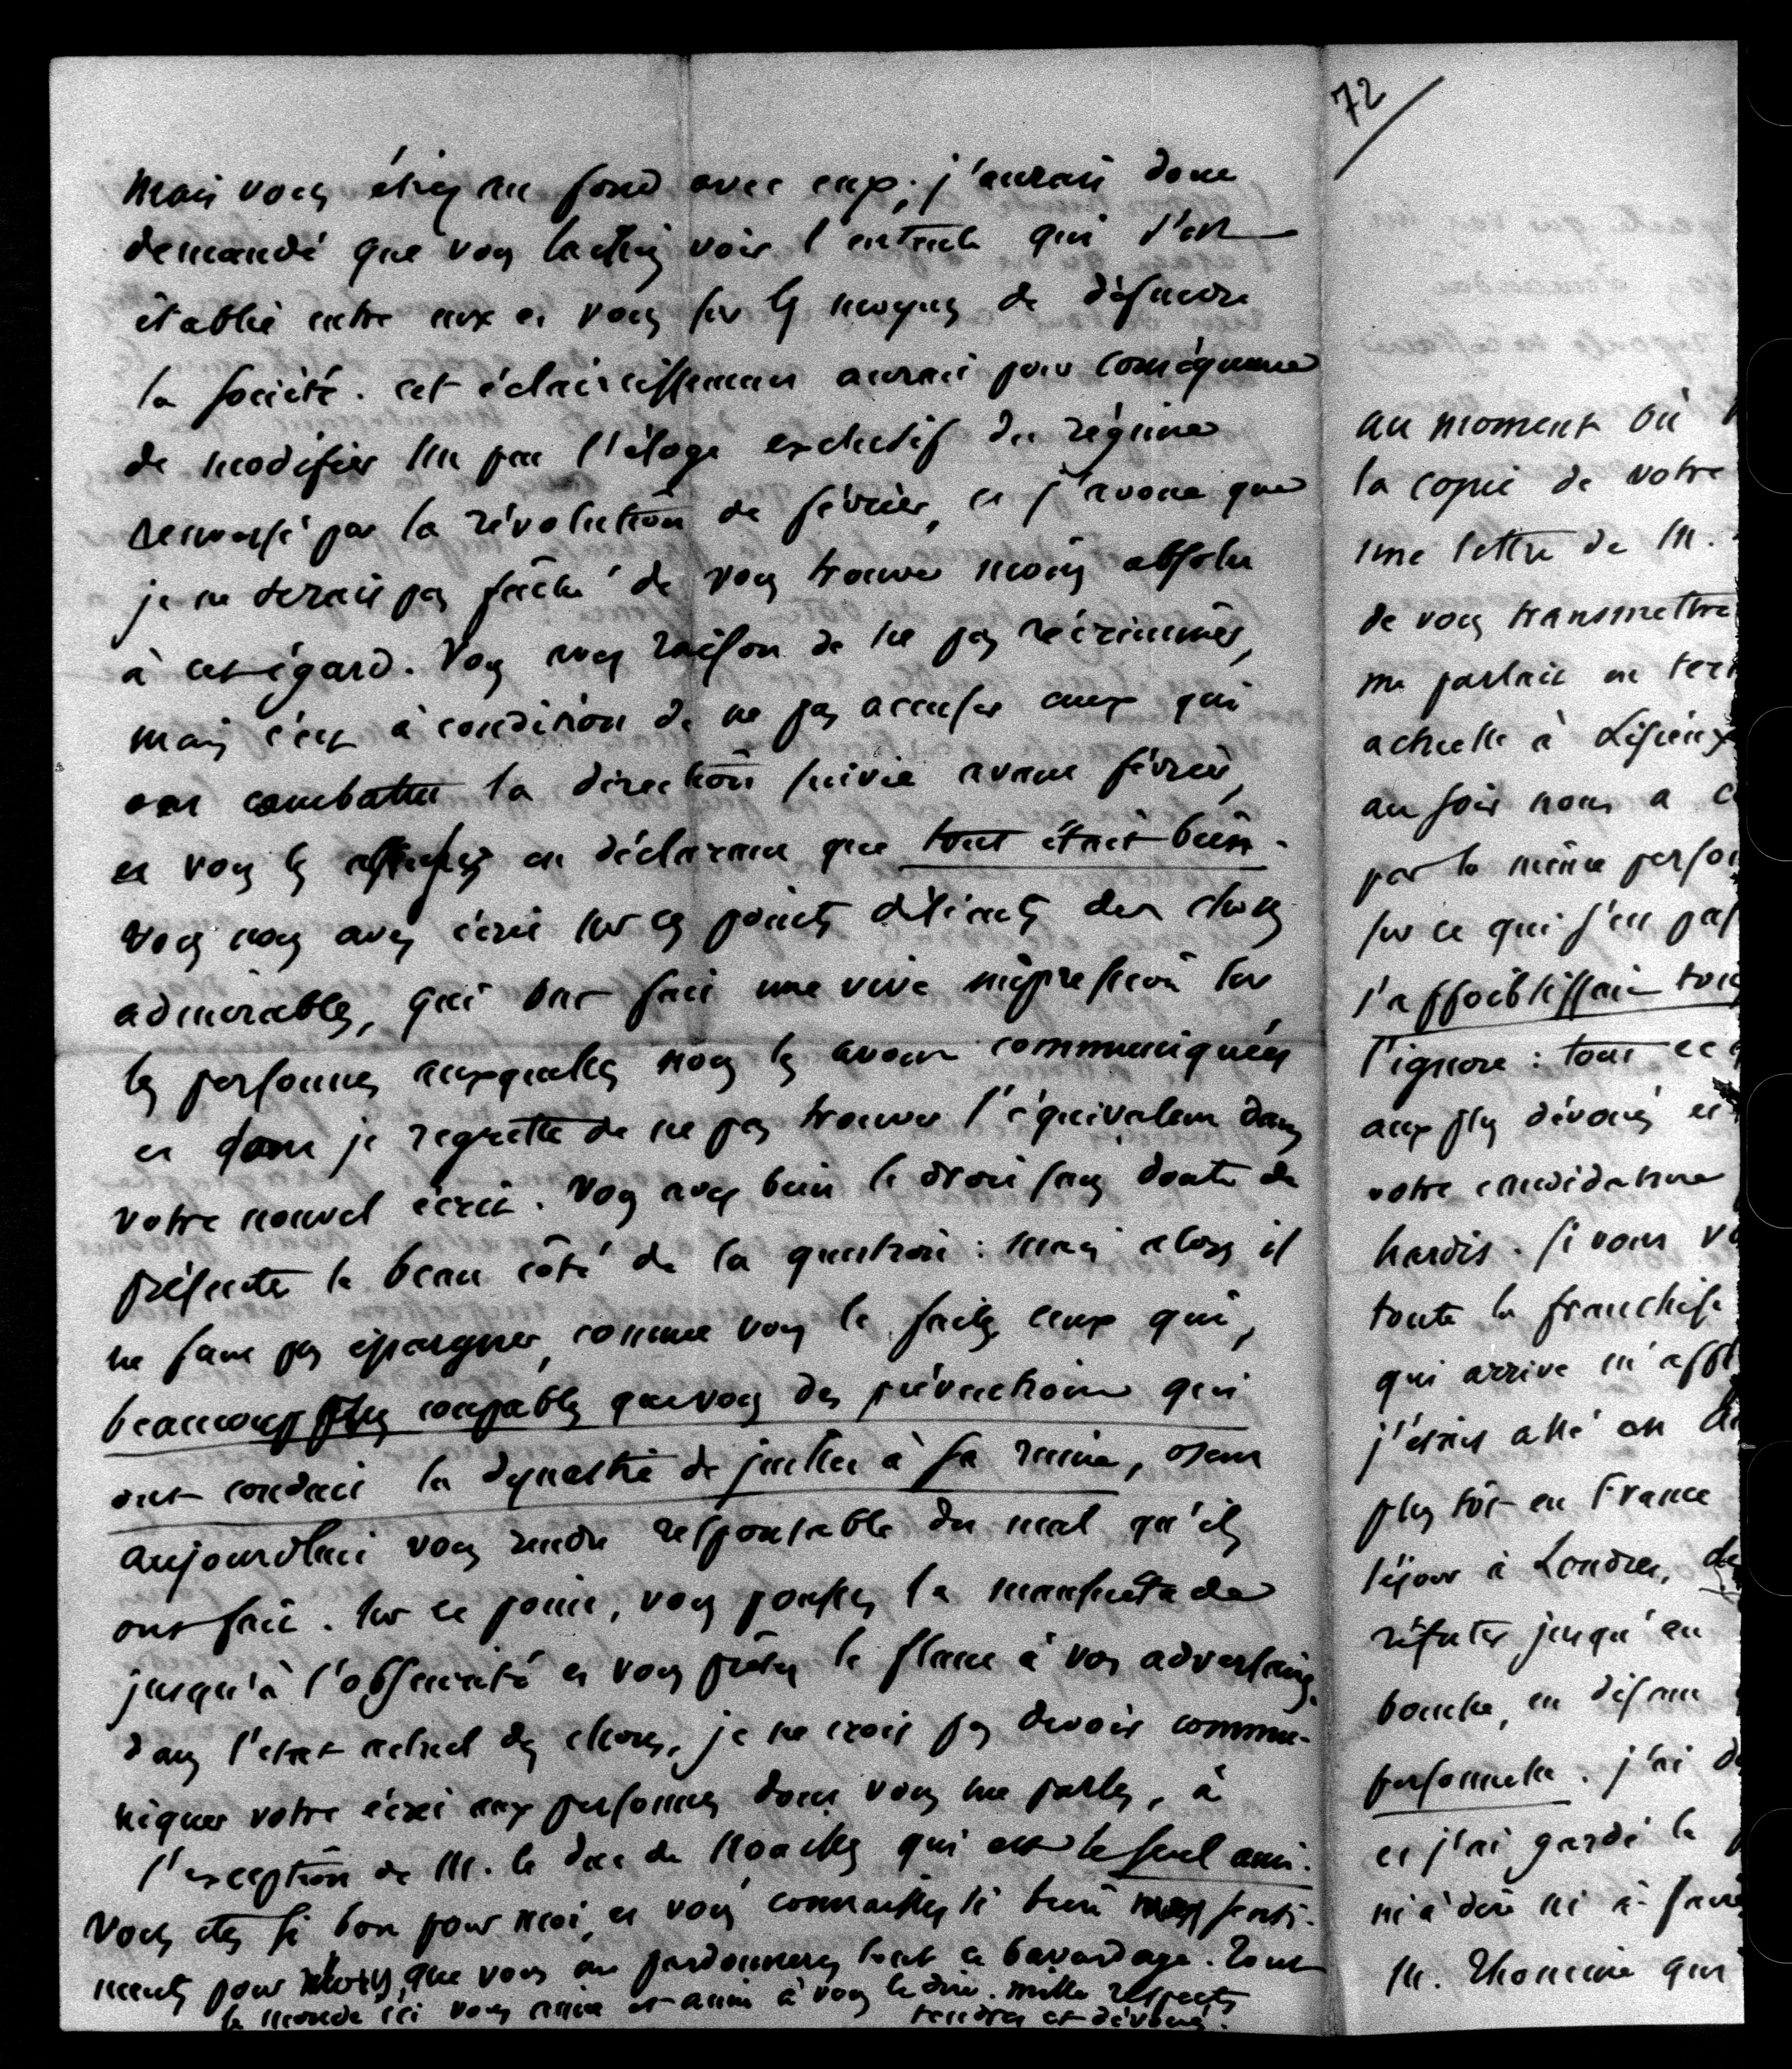 mais vous étiez au fond avec eux; j'aurais donc
demandé que vous laissiez voir l'entente qui s'est
établie entre eux et vous sur les moyens de défendre
la société. cet éclaircissement aurait pour conséquence
de modifier un peu l'éloge exclusif du régime
renversé par la révolution de février, et j'avoue que
je ne serais pas fâché de vous trouver moins absolu
à cet égard. Vous avez raison de ne pas récriminer,
mais c'est à condition de ne pas accuser ceux qui
ont combattu la direction suivie avant février,
et vous les en déclarant que tout était bien.
Vous nous avez écrit sur ces points délicats des choses
admirables, qui ont fait une vive impression sur
les personnes auxquelles nous les avons communiquées
et dont je regrette de ne pas trouver l'équivalent dans
votre nouvel écrit. Vous avez bien le droit sans doute de
présenter le beau côté de la question : mais alors il
ne faut pas épargner, comme vous le faites ceux qui,
beaucoup plus coupables que vous des préventions qui
ont conduit la dynastie de juillet à sa ruine, osent
aujourdhui vous rendre responsable du mal qu'ils
ont fait. sur ce point, vous poussez la mansuétude
jusqu'à l'obscurité et vous prêtez le flanc à vos adversaires.
dans l'état actuel des choses, je ne crois pas devoir commu-
niquer votre écrit aux personnes dont vous me parlez, à
l'exception de M. le duc de Noailles qui est le seul ami.
Vous etes si bon pour moi, et vous connaissez si bien mes senti-
ments pour vous, que vous me pardonnerez tout ce bavardage. Tout
le monde ici vous aime et aime à vous le dire. mille respects
tendres et dévoués.
72
au moment où
la copie de votre
une lettre de M.
de vous transmettre
me parlait en
actuelle à Lisieux
au soir nous a
par la même
sur ce qui s'en
s'affoiblissait
l'ignore : tout ce
aux plus dévoués et
votre candidature
hardis. si vous
toute la franchise
qui arrive m'
j'étais allé en
plus tôt en France
séjour à Londres,
réfuter jusqu'au
bouche, en disant
personnelle. j'ai
et j'ai gardé le
ni à dire ni à faire
M. Thomine qui